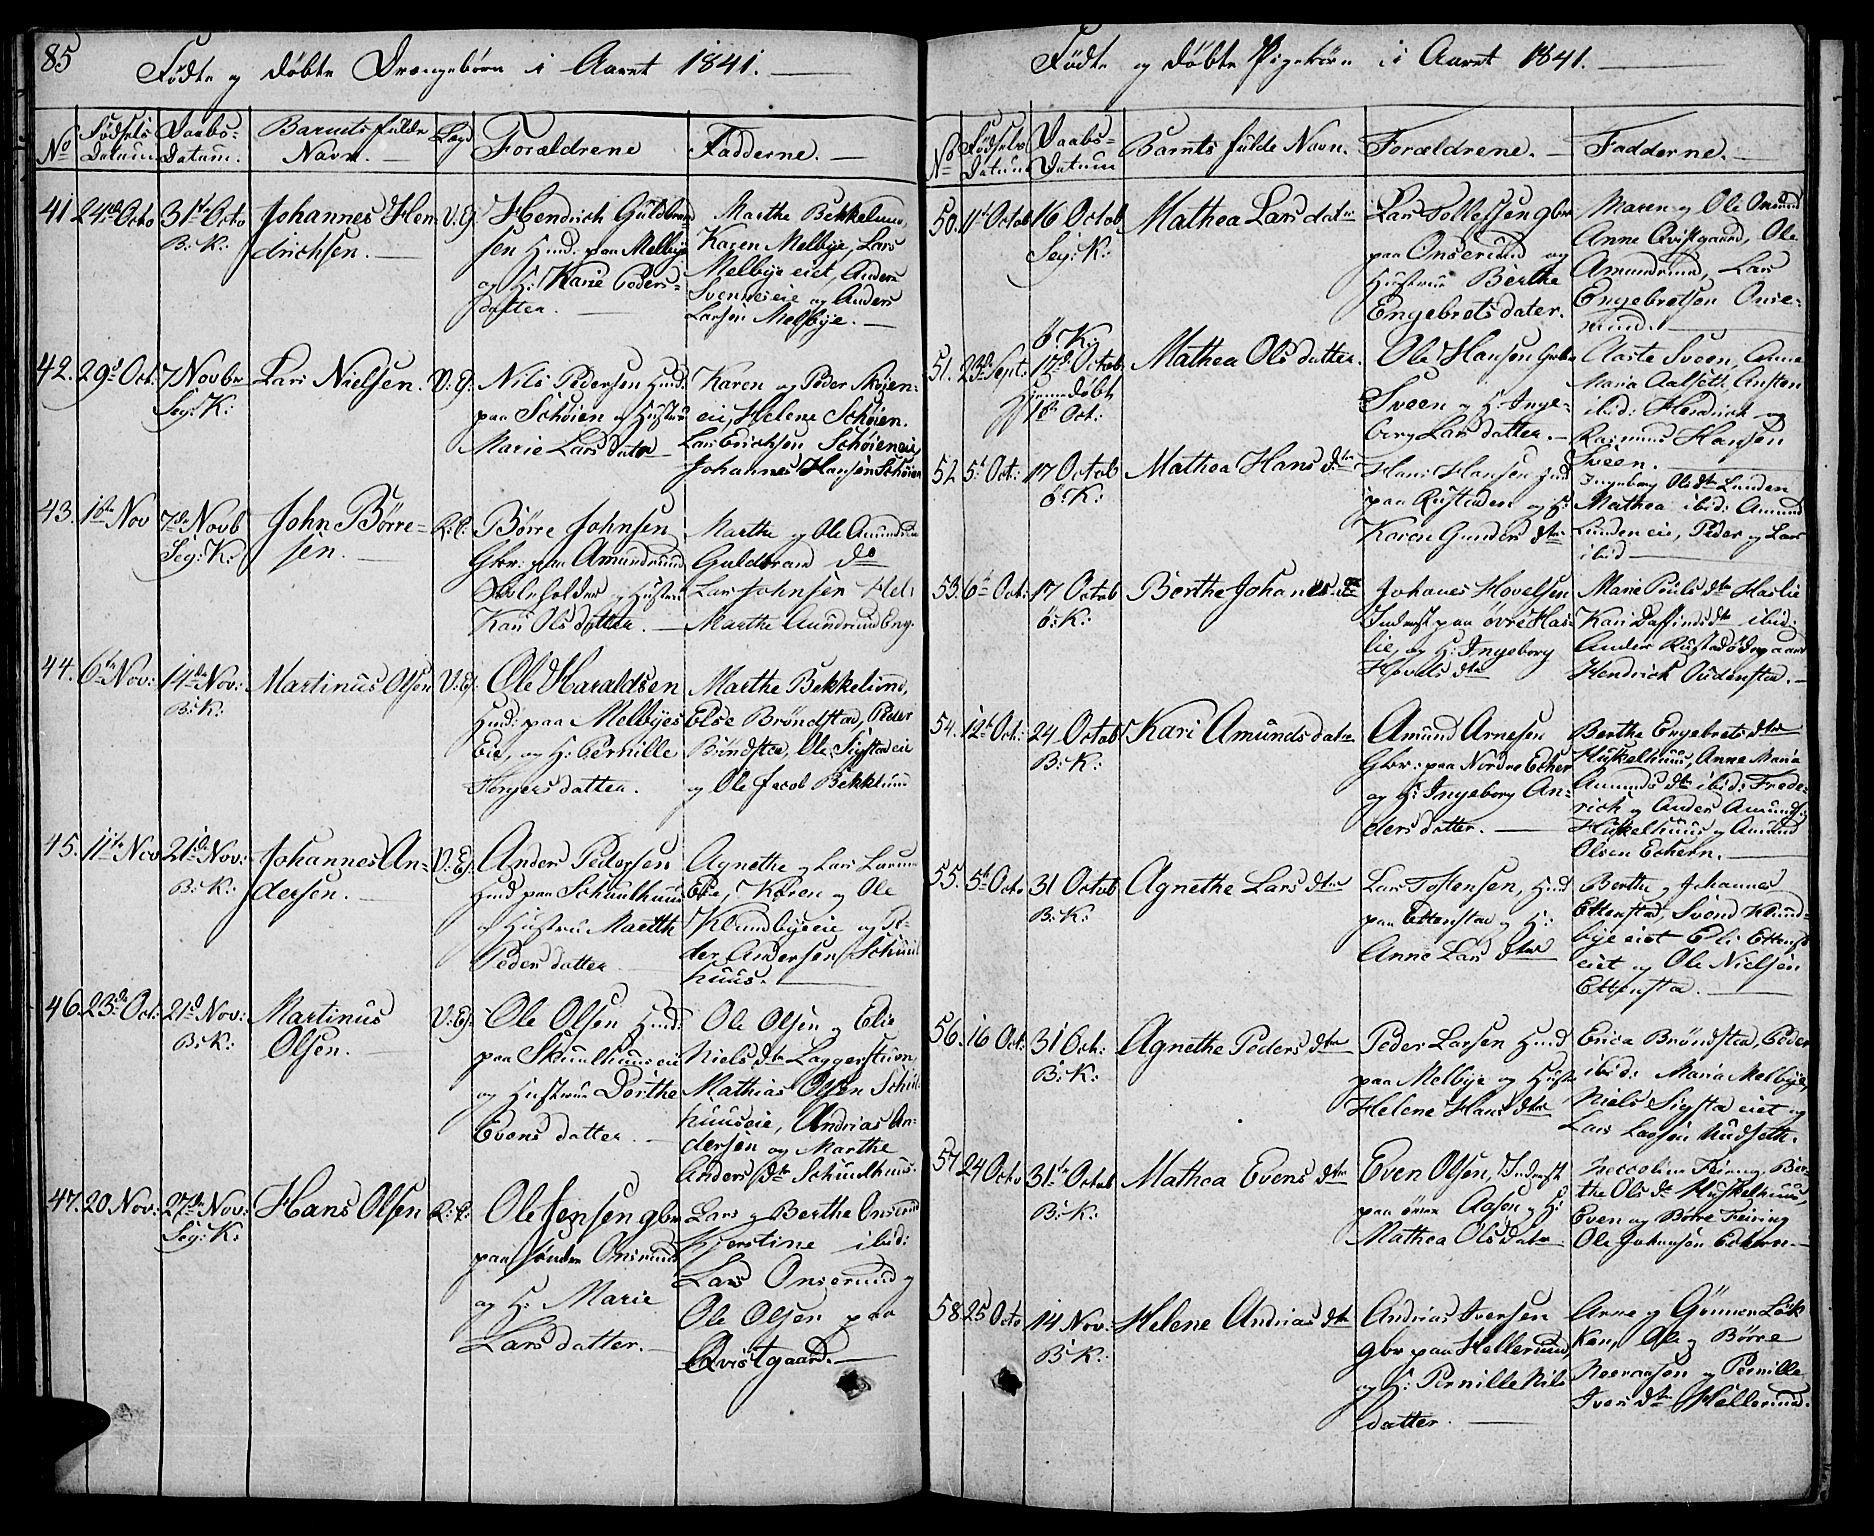 85
Fødte og døbte Drengebørn i Aaret 1841.
No
Fødsels Datum
Daabs-Datum.
Barnets fulde Navn.
Lægd
Forældrene
Fadderne.
41 24de Octo 31t Octo Johannes Hen V:E:
B:K: drichsen.
Hendrich Guldbrand
sen Huusmd: paa Melbye
og H: Karie Peders-
datter.
Marthe Bekkelund,
Karen Melbye, Lars
Melbye eiet, Anders
Svenneseie og Anders
Larsen Melbye.
42. 29d Oct: 7 Novbr Lars Nielsen. V:E:
Seg: K:
Nils Pedersen Huusmd:
paa Schøien og Hustrue
Marie Larsdatter
Karen og Peder Skøien-
eie, Helene Schøien.
Lars Erichsen Schøieneie,
Johannes Hansen Schøien
43. 1ste Nov 7de Novb John Børre-
Seg: K: sen.
Børre Johnsen
Gbr: paa Amundrund
Selvholder og Hustrue
Kari Olsdatter.
Marthe og Ole Amundrud
Guldbrand do
Lars Johnsen
Marthe Amundrund Eng.
44. 6te Nov: 14de Nov: Martinus Olsen V:E:
B:K:
Ole Haraldsen
Huusmd: paa Melbyes
Eie, og H: Pernille
Torgersdatter.
Marthe Bekkelund,
Else Brøndstad, Peder
Brøndstad, Ole Sigstadeie
og Ole Jacob Bekkelund
45. 11te Nov 21de Nov: Johannes An- V:E:
B:K: dersen.
Anders Pedersen
Huusmd paa Schuulhuus
og Hustrue Marthe
Pedersdatter
Agnethe og Lars Lørum
Eie, Karen og Ole
Klundbyeeie og Pe-
der Andersen Schuul
huus.
46. 23de Oct: 21d Nov: Martinus V:E:
B:K: Olsen.
Ole Olsen Huusmd:
paa Skuulhuuseie
og Hustrue Dorthe
Evensdatter
Ole Olsen og Elie
Nielsdtr Laggerstuen,
Mathias Olsen Schuul
huuseie, Andrias An-
dersen og Marthe
Andersdtr Schuulhuus.
47. 20 Nov: 27de Nov: Hans Olsen
Seg: K:
Ole Jensen gbr
paa søndre Onsrund
og H: Marie
Larsdatter.
Lars og Berthe Onserund
Kjerstine ibid:
Lars Onserund og
Ole Olsen paa
Qvistgaard.
Fødte og døbte Pigebørn i Aaret 1841.
No
Fødsels Datum
Daabs-Datum
Barnets fulde Navn.
Forældrene.
Fadderne.
50. 11t Octob 16 Octob Mathea Larsdatter
Seg: K:
Lars Tollefsen gbr
paa Onserund og
Hustrue Berthe
Engebretsdater.
Maren og Ole Onsrund
Anne Qvistgaard, Ole
Amundrund, Lars
Engebretsen Onse-
rund.
Ø: K:
51. 23d Sept: 17de Octob Mathea Olsdatter.
hjemmedøbt
10de Oct:
Ole Hansen Gaardbr
Sveen og H: Inge-
borg Larsdatter.
Aaste Sveen, Anne
Maria Aalseth, Austen
ibid: Hendrich og
Rasmus Hansen
Sveen.
52 5t Oct: 17 Octob Mathea Hansdtr
Ø: K:
Hans Hansen
paa Rustaden og H:
Karen Gundersdtr
Ingeborg Olsdtr Lunden
Mathea ibid: Amund
Lundereie, Peder og Lars
ibid
53. 6te Oct: 17 Octob Berthe Johanesdtr
Ø: K:
Johanes Hovelsen
Inderst paa øvre Has-
lie, og H: Ingeborg
Hovelsdtr
Marie Poulsdtr Haslie
Kari Daffindsdtr ibid:
Anders Rustadødegaard
Hendrich Audenstad.
54. 12t Oct: 24 Octob Kari Amundsdatter
B: K:
Amund Arnesen
Gbr: paa Nordre Eckern
og H: Ingeborg An-
dersdatter.
Berthe Engebretsdtr
Huskelhuus, Anne Maria
Amundsdtr ibid: Frede-
rich og Anders Amundsen
Huskelhuus og Amund
Olsen Eckern.
55. 5t Octo 31 Octob Agnethe Larsdtr
B: K:
Lars Tostensen, Huusmd
paa Ettenstad og H:
Anne Larsdtr
Berthe og Johannes
Ettenstad, Svend Klund-
bye eiet Eli Ettenst
eiet og Ole Nielsen
Ettenstad.
56. 16 Oct: 31 Oct: Agnethe Pedersdtr
B: K:
Peder Larsen Huusmd
paa Melbye og Hustr
Helene Hansdtr
Erica Brøndstad, Peder
ibid: Maria Melbye,
Niels Sigstad eiet og
Lars Larsen Hudseth.
57 24 Octo 31te Octob Mathea Evensdtr
B: K:
Even Olsen, Inderst
paa øvre Aasen og H:
Mathea Olsdatr
Nicoline Feiring, Ber-
the Olsdtr Huskelhuus,
Even og Børre Feiring
Ole Johansen Eckern.
58 25 Octo 14 Nov: Helene Andriasdtr
B: K:
Andrias Iversen
gbr paa Hellerund,
og H: Pernille Nils
datter.
Anne og Gønner Løk
ken, Ole og Børre
og Pernille
Iversdtr Hellerund.